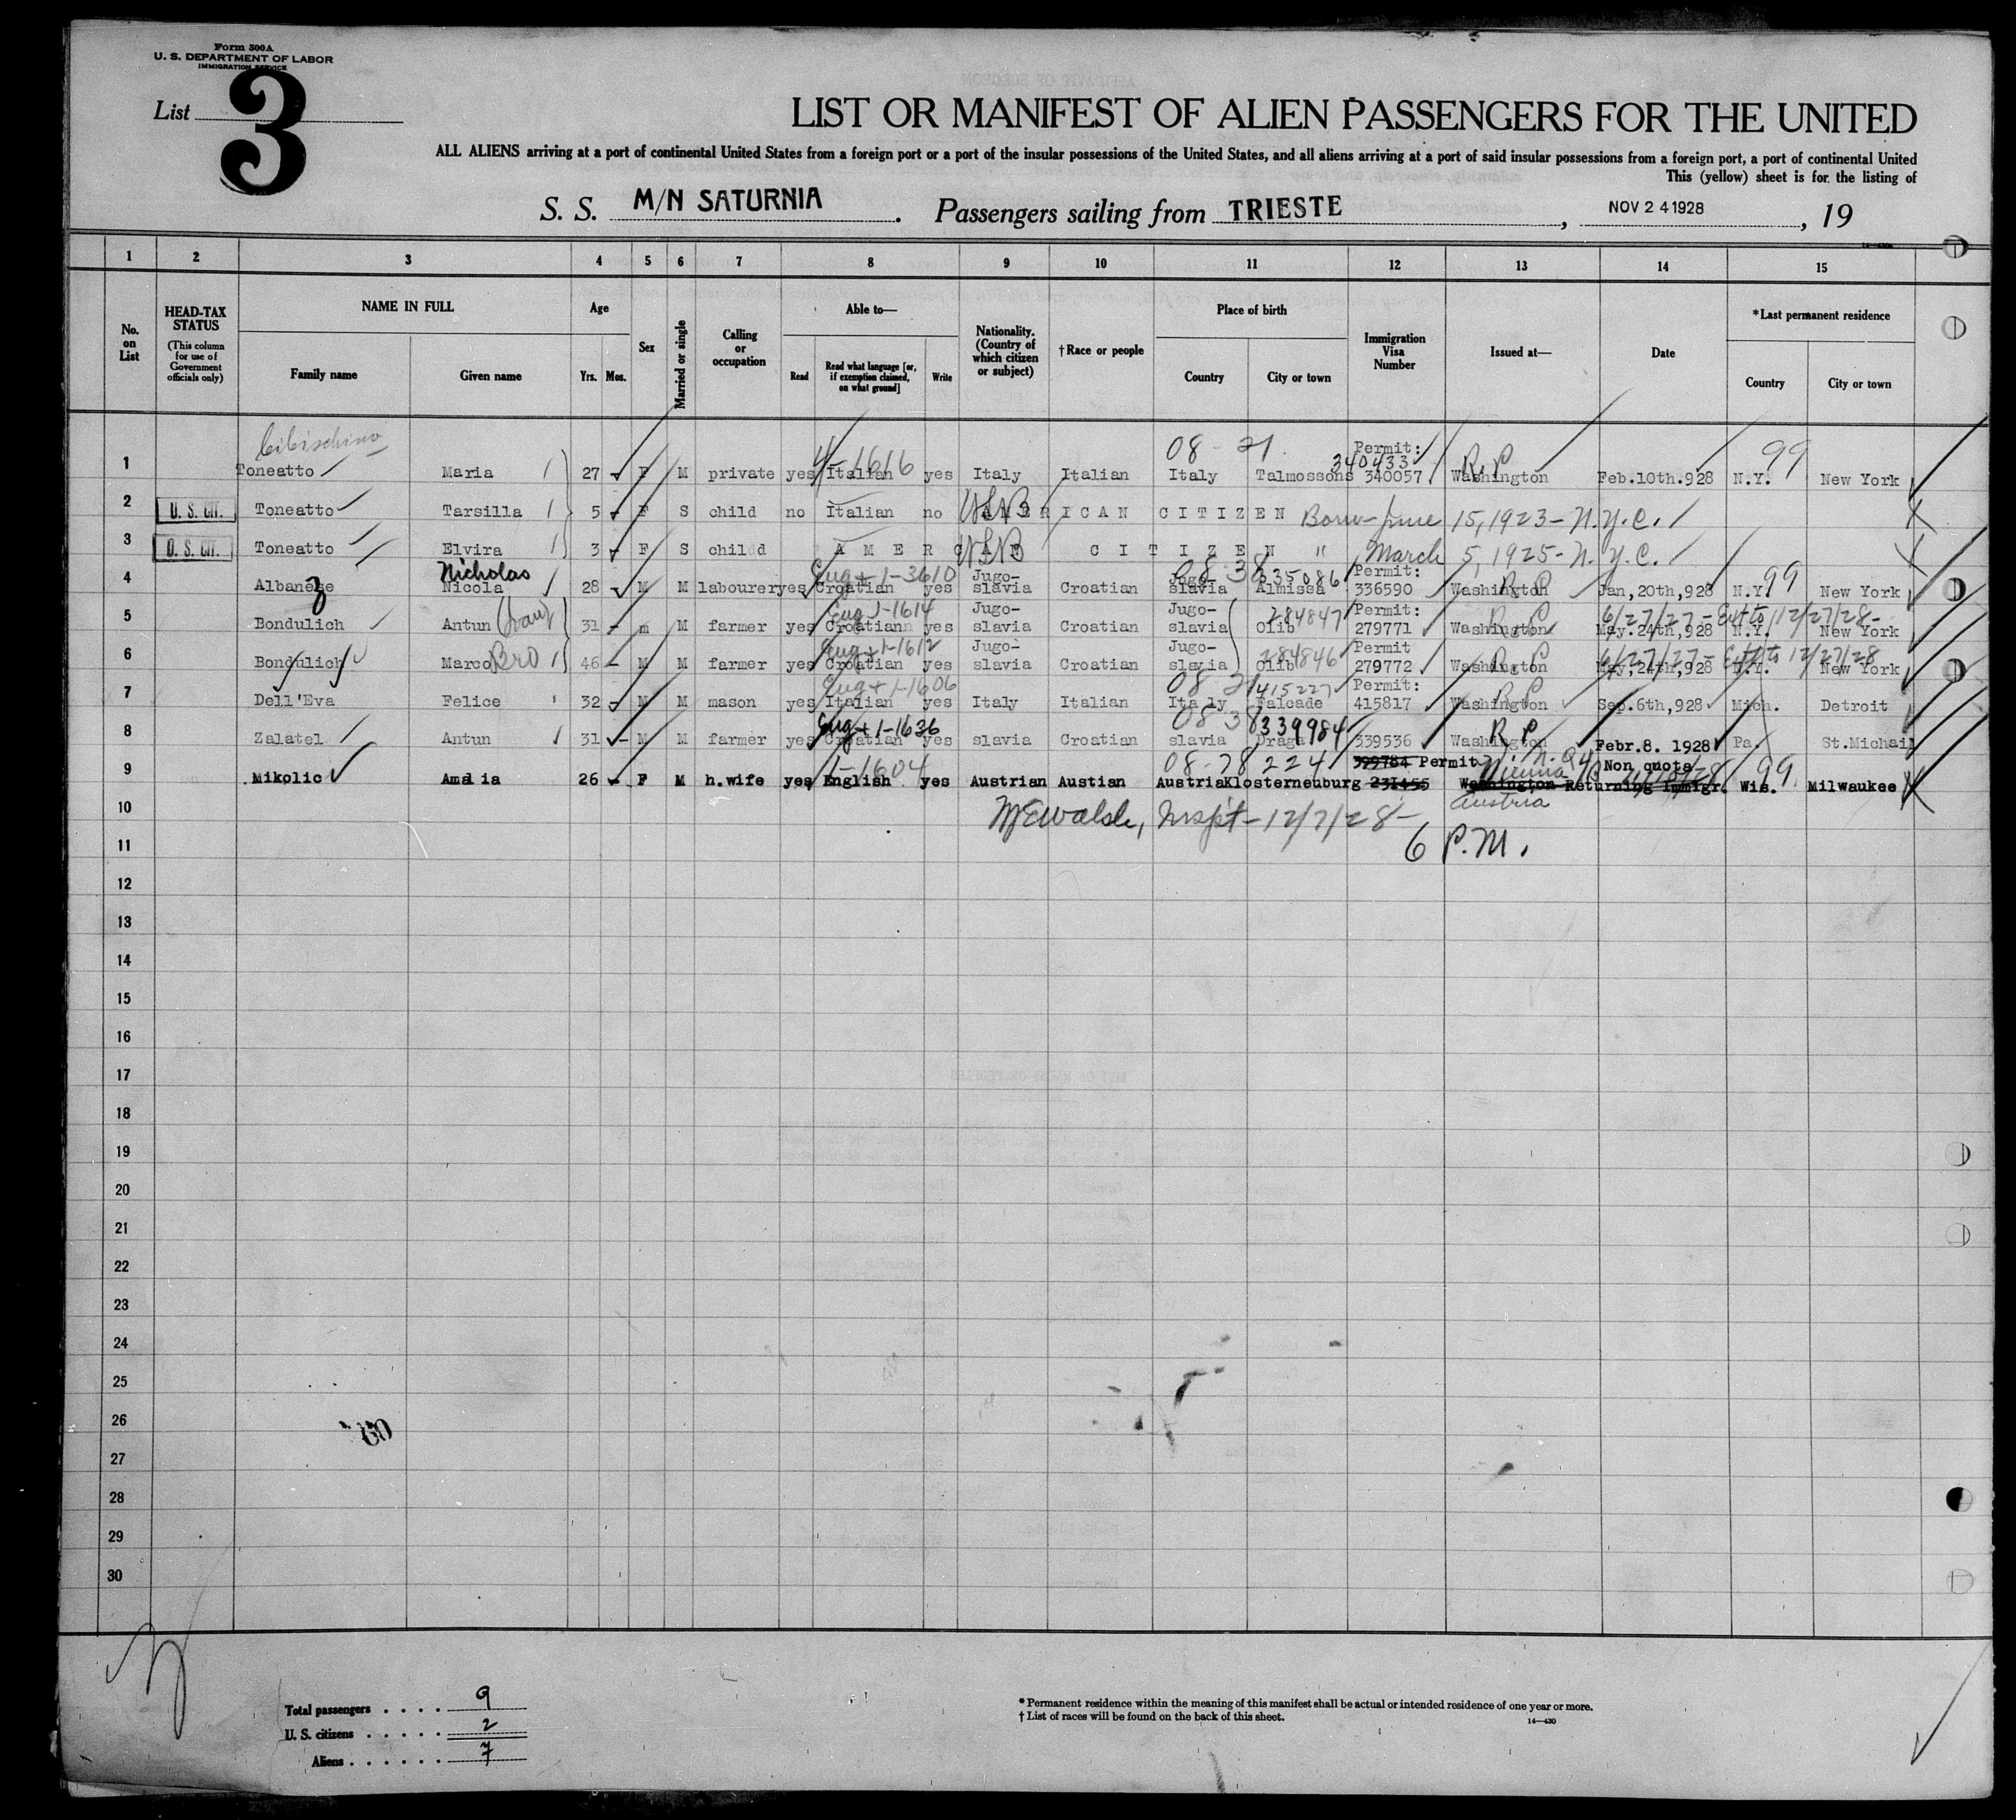 Form 500A
U. S. DEPARTMENT OF LABOR
IMMIGRATION SERVICE
List 3
LIST OR MANIFEST OF ALIEN PASSENGERS FOR THE UNITED
ALL ALIENS arriving at a port of continental United States from a foreign port or a port of the insular possessions of the United States, and all aliens arriving at a port of said insular possessions from a foreign port, a port of continental United
This (yellow) sheet is for the listing of
S. S. M/N SATURNIA. Passengers sailing from TRIESTE, NOV 2 4 1928, 19
1 2 3 4 5 6 7 8 9 10 11 12 13 14 15
No. on List
HEAD-TAX STATUS
(This column for use of Government officials only)
NAME IN FULL
Family name Given name
Age
Yrs. Mos.
Sex
Married or single
Calling or occupation
Able to—
Read Read what language [or, if exemption claimed, on what ground] Write
Nationality. (Country of which citizen or subject)
†Race or people
Place of birth
Country City or town
Immigration Visa Number
Issued at—
Date
*Last permanent residence
Country City or town
08-21 Permit: 99
4-1616 340433 R.P
1 Toneatto Maria 27 F M private yes Italian yes Italy Italian Italy Talmossons 340057 Washington Feb.10th.928 N.Y. New York
2 U. S. CIT. Toneatto Tarsilla 5 F S child no Italian no AMERICAN CITIZEN Born June 15, 1923 - N.Y.C.
3 U. S. CIT. Toneatto Elvira 3 F S child AMERICAN CITIZEN " March 5, 1925 - N.Y.C.
Nicholas 1-3610 Jugo- Jugo- 08-38 335086 Permit: R P 99
4 Albanese Nicola 28 M M labourer yes Croatian yes slavia Croatian slavia Almissa 336590 Washington Jan,20th,928 N.Y. New York
1-1614 Jugo- Jugo- 284847 Permit: R P 6/27/27 - Ext to 12/27/28-
5 Bondulich Antun 31 m M farmer yes Croatian yes slavia Croatian slavia Olib 279771 Washington May.24th,928 N.Y. New York
1-1612 Jugo- Jugo- 284846 Permit R P 6/27/27 - Ext to 12/27/28
6 Bondulich Marco Bro 46 M M farmer yes Croatian yes slavia Croatian slavia Olib 279772 Washington May,24th,928 N.Y. New York
1-1606 08-21 415227 Permit: R P
7 Dell'Eva Felice 32 M M mason yes Italian yes Italy Italian Italy Falcade 415817 Washington Sep.6th,928 Mich. Detroit
1-1636 08-38 339984 R P
8 Zalatel Antun 31 M M farmer yes Croatian yes slavia Croatian slavia Draga 339536 Washington Febr.8. 1928 Pa. St.Michail
1-1604 08-28 224 399784 Permit Vienna Non quota 99
9 Mikolic Amalia 26 F M h.wife yes English yes Austrian Austian Austria Klosterneuburg 231455 Washington Returning Immigr. Wis. Milwaukee
Austria
10 Walsh, Inspt - 12/7/28 -
11 6 P.M.
12
13
14
15
16
17
18
19
20
21
22
23
24
25
26
27
28
29
30
Total passengers . . . . 9
U. S. citizens . . . . . 2
Aliens . . . . . . 7
* Permanent residence within the meaning of this manifest shall be actual or intended residence of one year or more.
† List of races will be found on the back of this sheet.
14—430